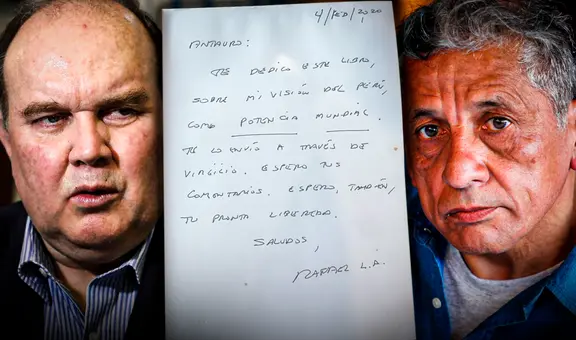 4/FEB/2020
ANTAURO:
TE DEDICO ESTE LIBRO,
SOBRE MI VISIÓN DEL PERÚ,
COMO POTENCIA MUNDIAL.
TE LO ENVIO A TRAVÉS DE
VIRGILIO. ESPERO TUS
COMENTARIOS. ESPERO, TAMBIÉN,
TU PRONTA LIBERTAD.
SALUDOS,
RAFAEL L.A.